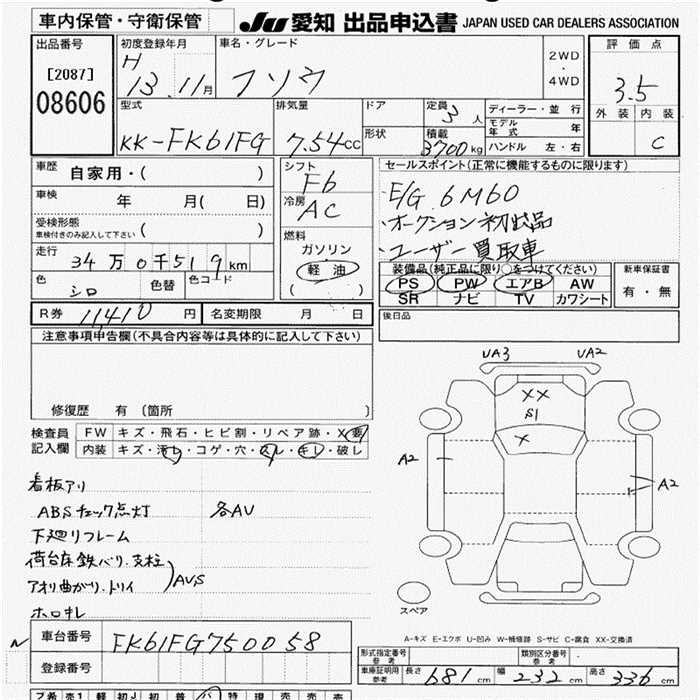 車内保管・守衛保管
JU 愛知 出品申込書 JAPAN USED CAR DEALERS ASSOCIATION
出品番号
[2087]
08606
初度登録年月
H
13.11月
車名・グレード
フソウ
2WD
・
4WD
評価点
3.5
外装 内装
C
型式
KK-FK61FG
排気量
7.54cc
ドア
形状
定員
3人
積載
3700kg
ディーラー・並行
モデル年式 年
ハンドル 左・右
車歴
自家用・( )
車検
年 月( 日)
受検形態
車検付きのみ記入して下さい ( )
走行
34万0千519km
色
シロ
色替
色コード
シフト
F6
冷房
AC
燃料
ガソリン
軽油
( )
セールスポイント(正常に機能するものに限ります)
E/G 6M60
・オークション初出品
・ユーザー買取車
装備品(純正品に限り○をつけてください)
PS PW エアB AW
SR ナビ TV カワシート
新車保証書
有・無
R券 11410円
名変期限 月 日
後日品
注意事項申告欄(不具合内容等は具体的に記入して下さい)
修復歴 有 (箇所 )
検査員
記入欄
FW キズ・飛石・ヒビ割・リペア跡・X・要
内装 キズ・汚れ・コゲ・穴・スレ・キレ・破レ
看板アリ
ABSチェック点灯 各AU
下廻リフレーム
荷台床鉄バリ.支柱
アオリ曲がり.トリイ
AUS
ホロキレ
UA3 UA2
XX
S1
X
A2
A2
スペア
A-キズ E-エクボ U-凹み W-補修跡 S-サビ C-腐食 XX-交換済
車台番号
FK61FG750058
登録番号
形式指定番号
参考
類別区分番号
参考
車庫証明用
参考
長さ 681cm 幅 232cm 高さ 336cm